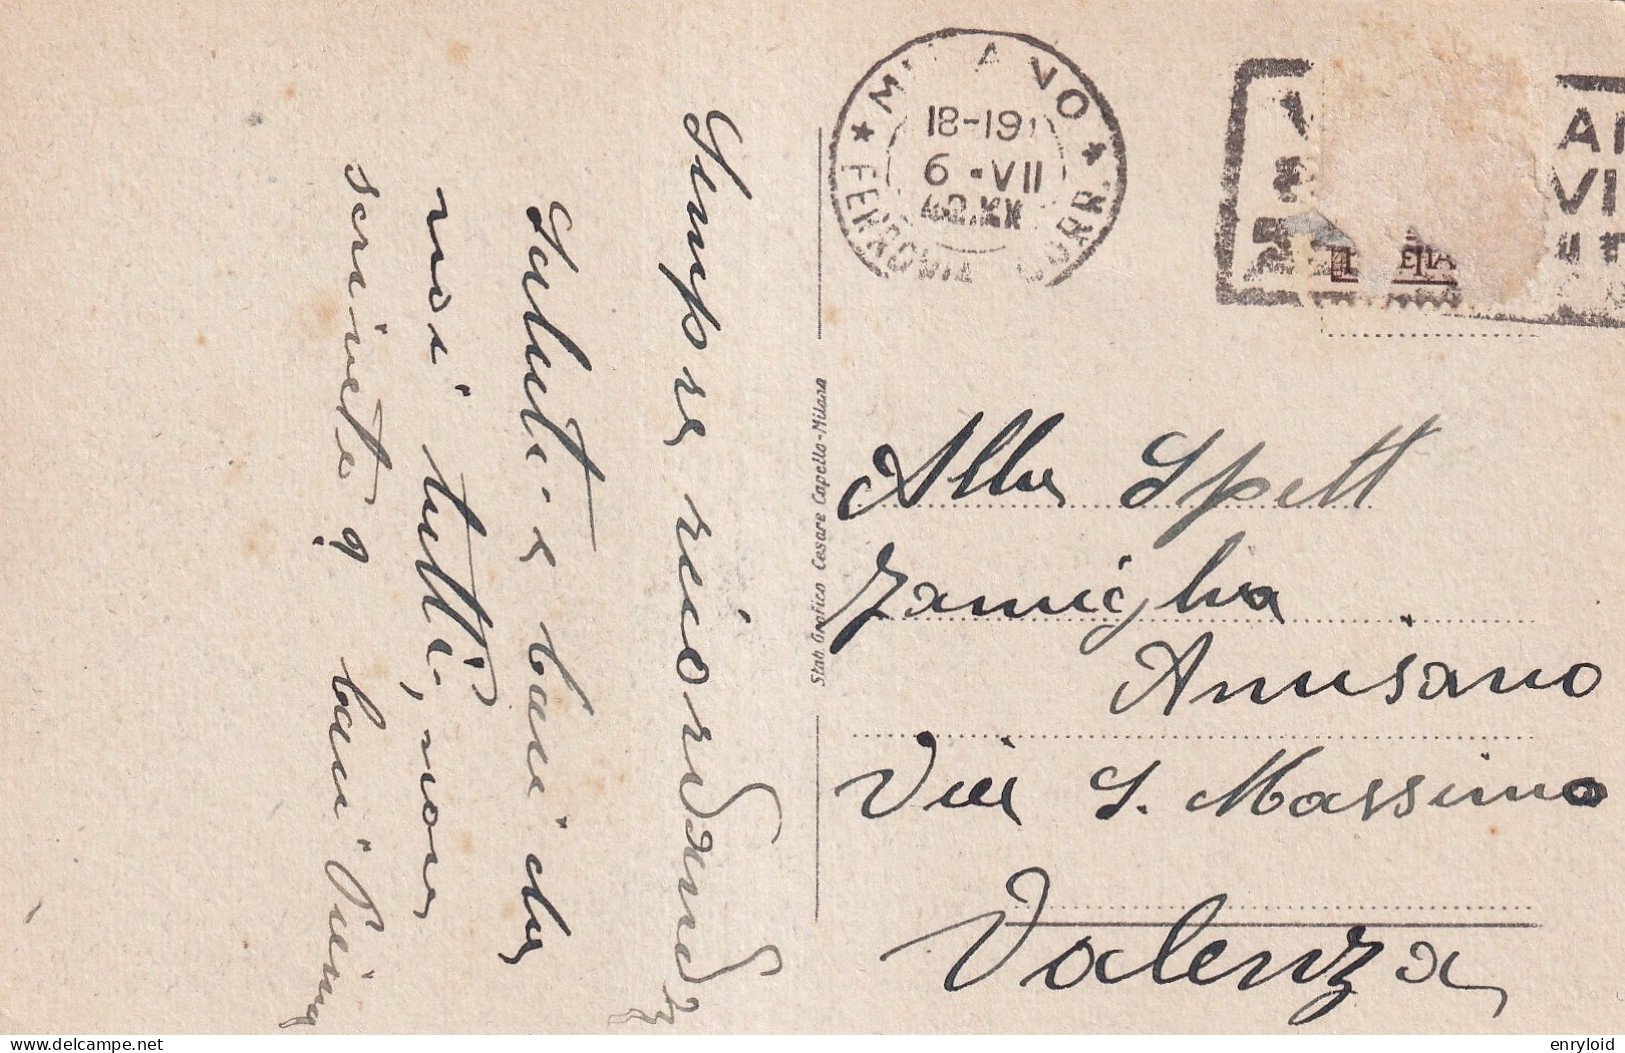 Sempre ricordandovi
saluti e baci da
noi tutti, non
scrivete? baci Pierina
Stab. Grafico Cesare Capello-Milano
MILANO
18-19
6-VII
42.XX
FERROVIA CORR.
Alla Spett
Famiglia
Annisano
Via S. Massimo
Valenza
www.delcampe.net
enryloid